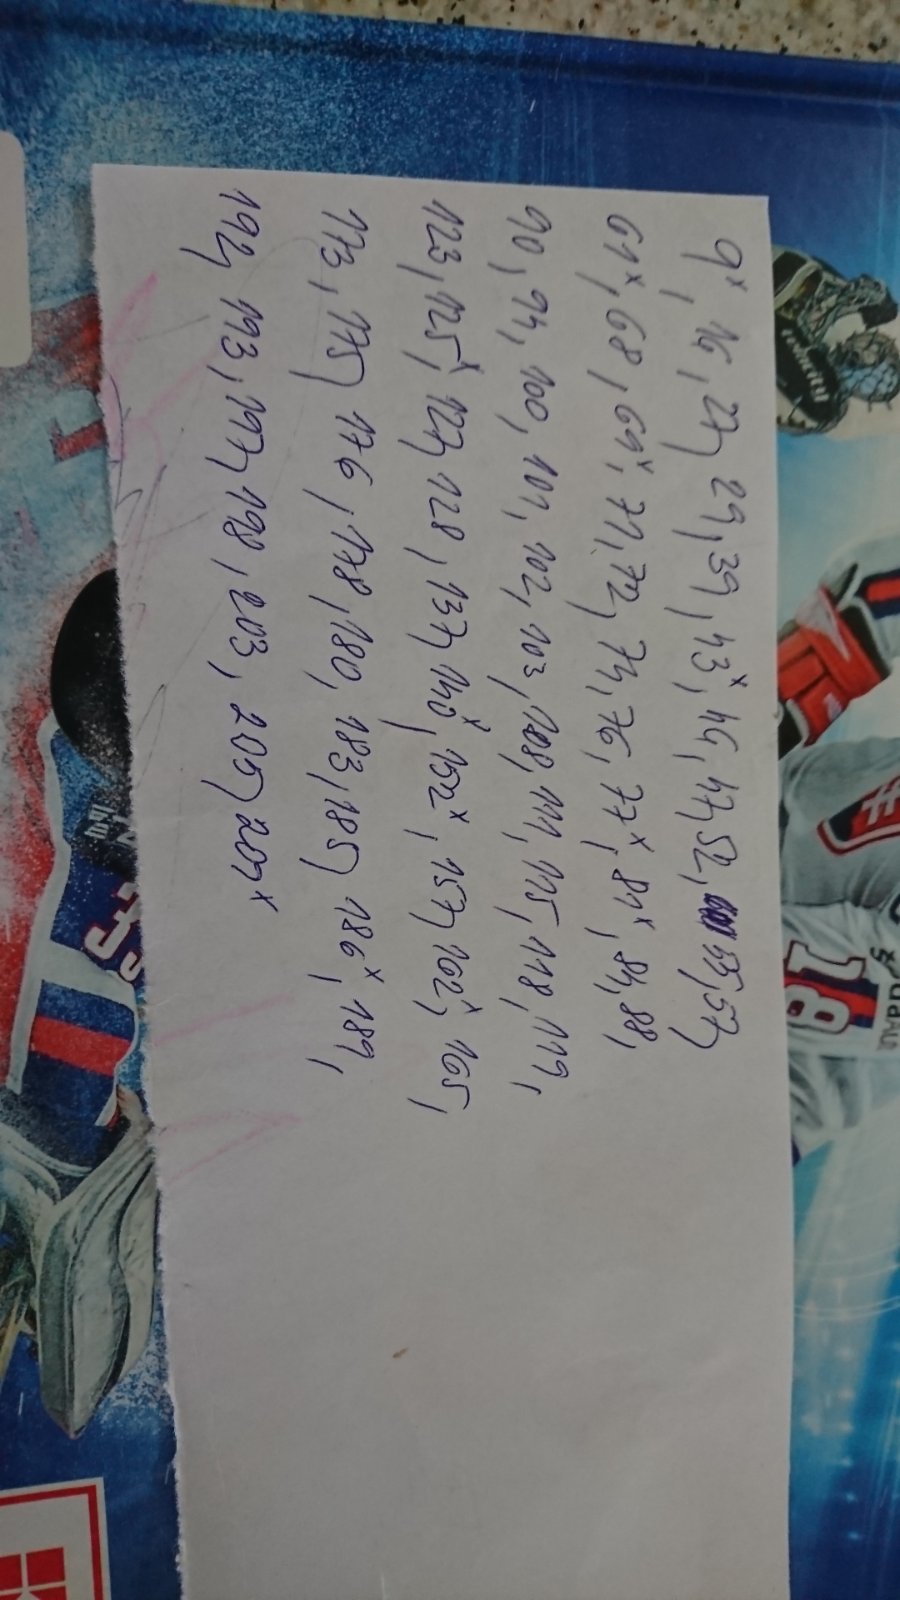 9ˣ, 16, 27, 29, 39, 43ˣ, 46, 47, 52, 55, 57,
61ˣ, 68, 69ˣ, 71, 72, 74, 76, 77ˣ, 81ˣ, 84, 88,
90, 94, 100, 101, 102, 103, 108, 111, 115, 118, 119,
123, 125ˣ, 127, 128, 137, 140ˣ, 152ˣ, 157, 162ˣ, 165,
173, 175, 176, 178, 180, 183, 185, 186ˣ, 189,
192, 193, 197, 198, 203, 205, 207ˣ
18